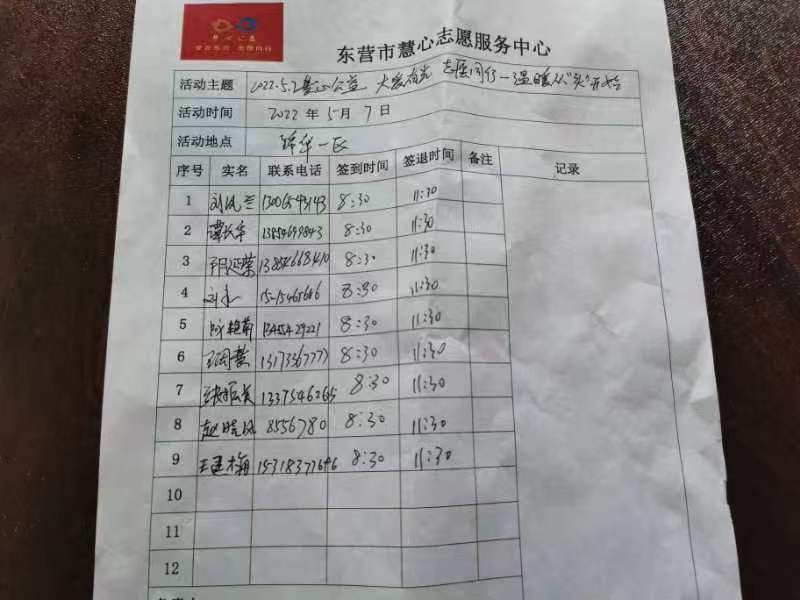 东营市慧心志愿服务中心
活动主题 2022.5.7慧心公益 大爱有光 志愿同行—温暖从"头"开始
活动时间 2022年5月7日
活动地点 锦华一区
序号 实名 联系电话 签到时间 签退时间 备注 记录
1 刘凤兰 13065443143 8:30 11:30
2 谭长华 13854699843 8:30 11:30
3 延荣 13854668410 8:30 11:30
4 刘 8:30 11:30
5 13455429221 8:30 11:30
6 王国慧 13173367777 8:30 11:30
7 13375466265 8:30 11:30
8 赵晓凤 8556780 8:30 11:30
9 王建梅 15318377646 8:30 11:30
10
11
12